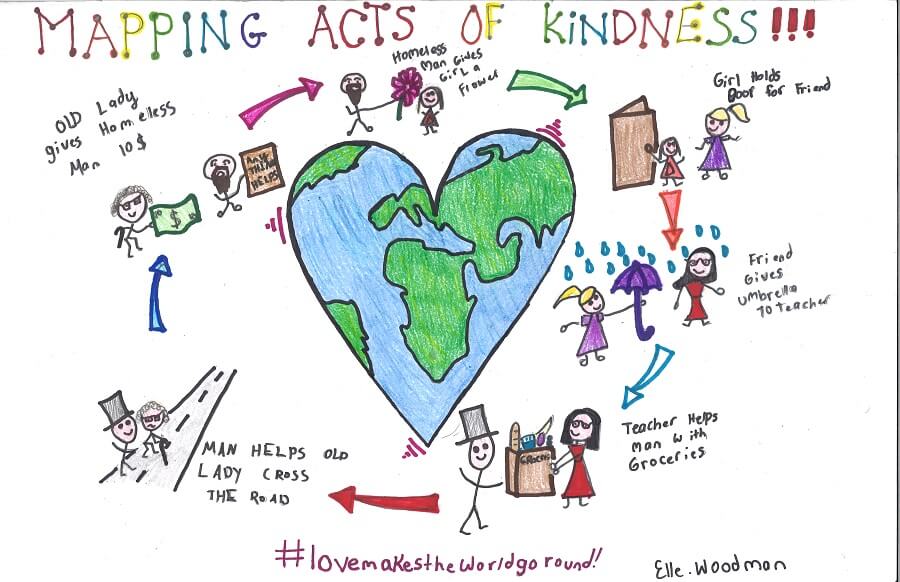 MAPPING ACTS OF KINDNESS!!!
OLD Lady
gives Homeless
Man 10$
ANY
THING
HELPS
$
Homeless
Man Gives
Girl a
Flower
Girl Holds
Door for Friend
Friend
Gives
Umbrella
TO Teacher
Teacher Helps
Man With
Groceries
MAN HELPS OLD
LADY CROSS
THE ROAD
#lovemakestheworldgoround!
Elle.Woodman